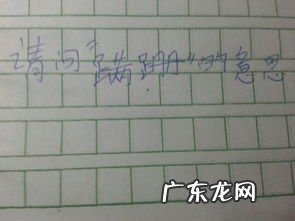 请问“蹒跚”的意思
广东龙网